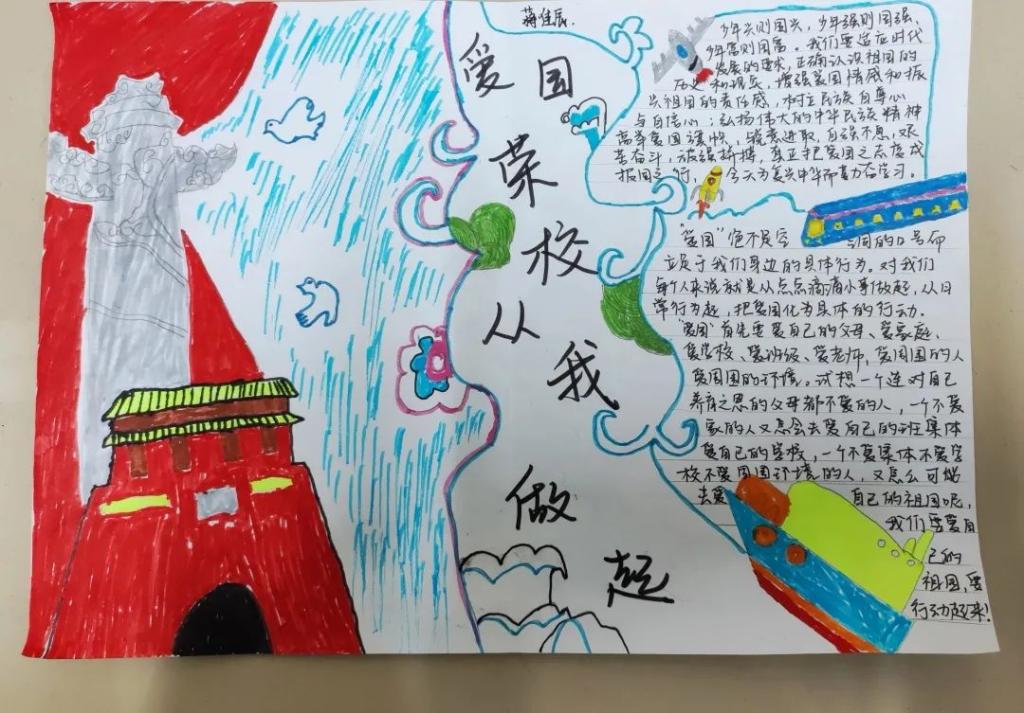 蒋佳辰
爱国
荣校
从我
做
起
少年兴则国兴，少年强则国强，
少年富则国富。我们要适应时代
发展的要求，正确认识祖国的
历史和现实，增强爱国情感和振
兴祖国的责任感，树立民族自尊心
与自信心；弘扬伟大的中华民族精神
高举爱国旗帜，锐意进取，自强不息，艰
苦奋斗，顽强拼搏，真正把爱国之志变成
报国之行，今天为复兴中华而努力学习。
"爱国"绝不是空 与间的口号而
立足于我们身边的具体行为。对我们
每个人来说就是从点点滴滴小事做起，从日
常行为起，把爱国化为具体的行动。
"爱国"首先要爱自己的父母、爱家庭、
爱学校、爱班级、爱老师，爱周围的人
爱周围的环境。试想一个连对自己
养育之恩的父母都不爱的人，一个不爱
家的人又怎会去爱自己的班集体
爱自己的学校，一个不爱集体不爱学
校不爱周围环境的人，又怎么可能
去爱 自己的祖国呢，
我们要爱自
己的
祖国，要
行动起来！